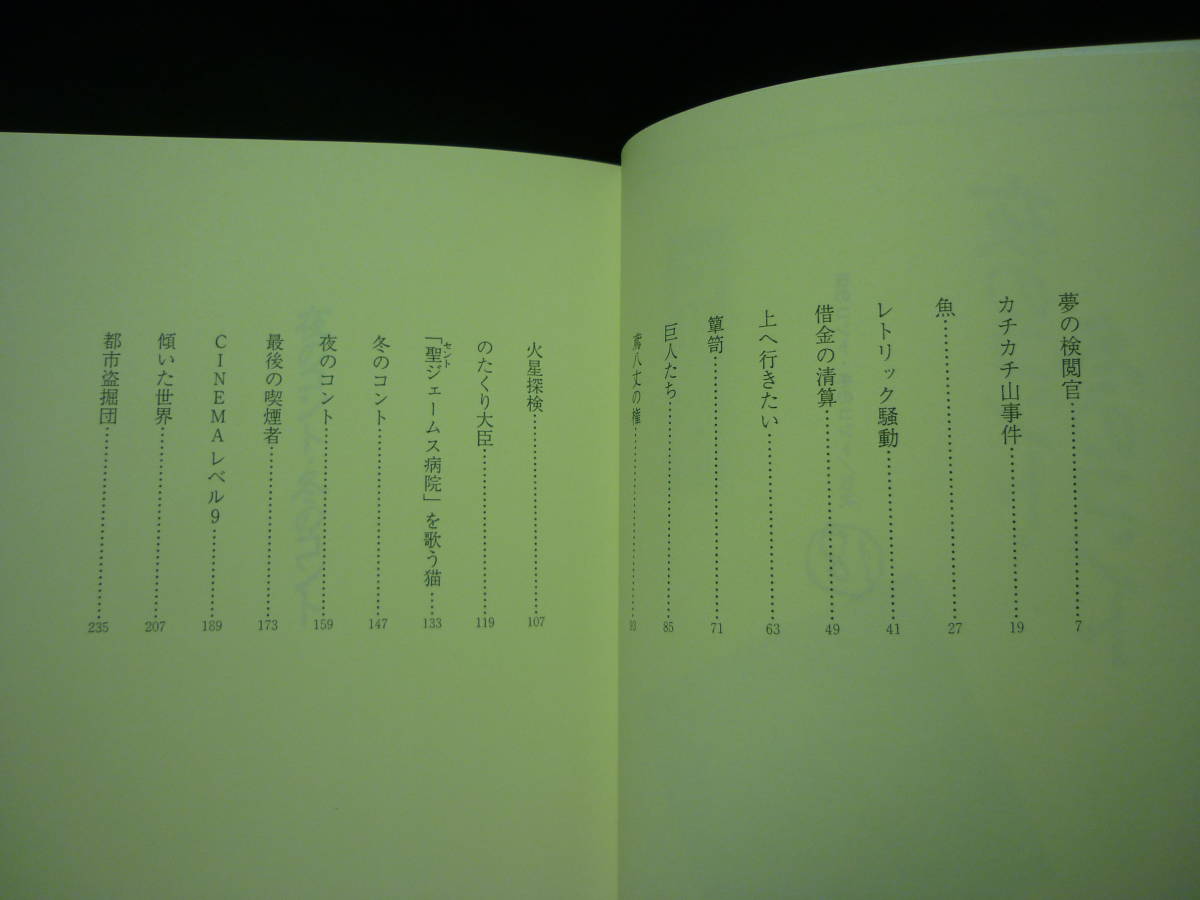 夢の検閲官……7
カチカチ山事件……19
魚……27
レトリック騒動……41
借金の清算……49
上へ行きたい……63
簞笥……71
巨人たち……85
鳶八丈の権……93
火星探検……107
のたくり大臣……119
「聖ジェームス病院」を歌う猫……133
セント
冬のコント……147
夜のコント……159
最後の喫煙者……173
CINEMAレベル9……189
傾いた世界……207
都市盗掘団……235